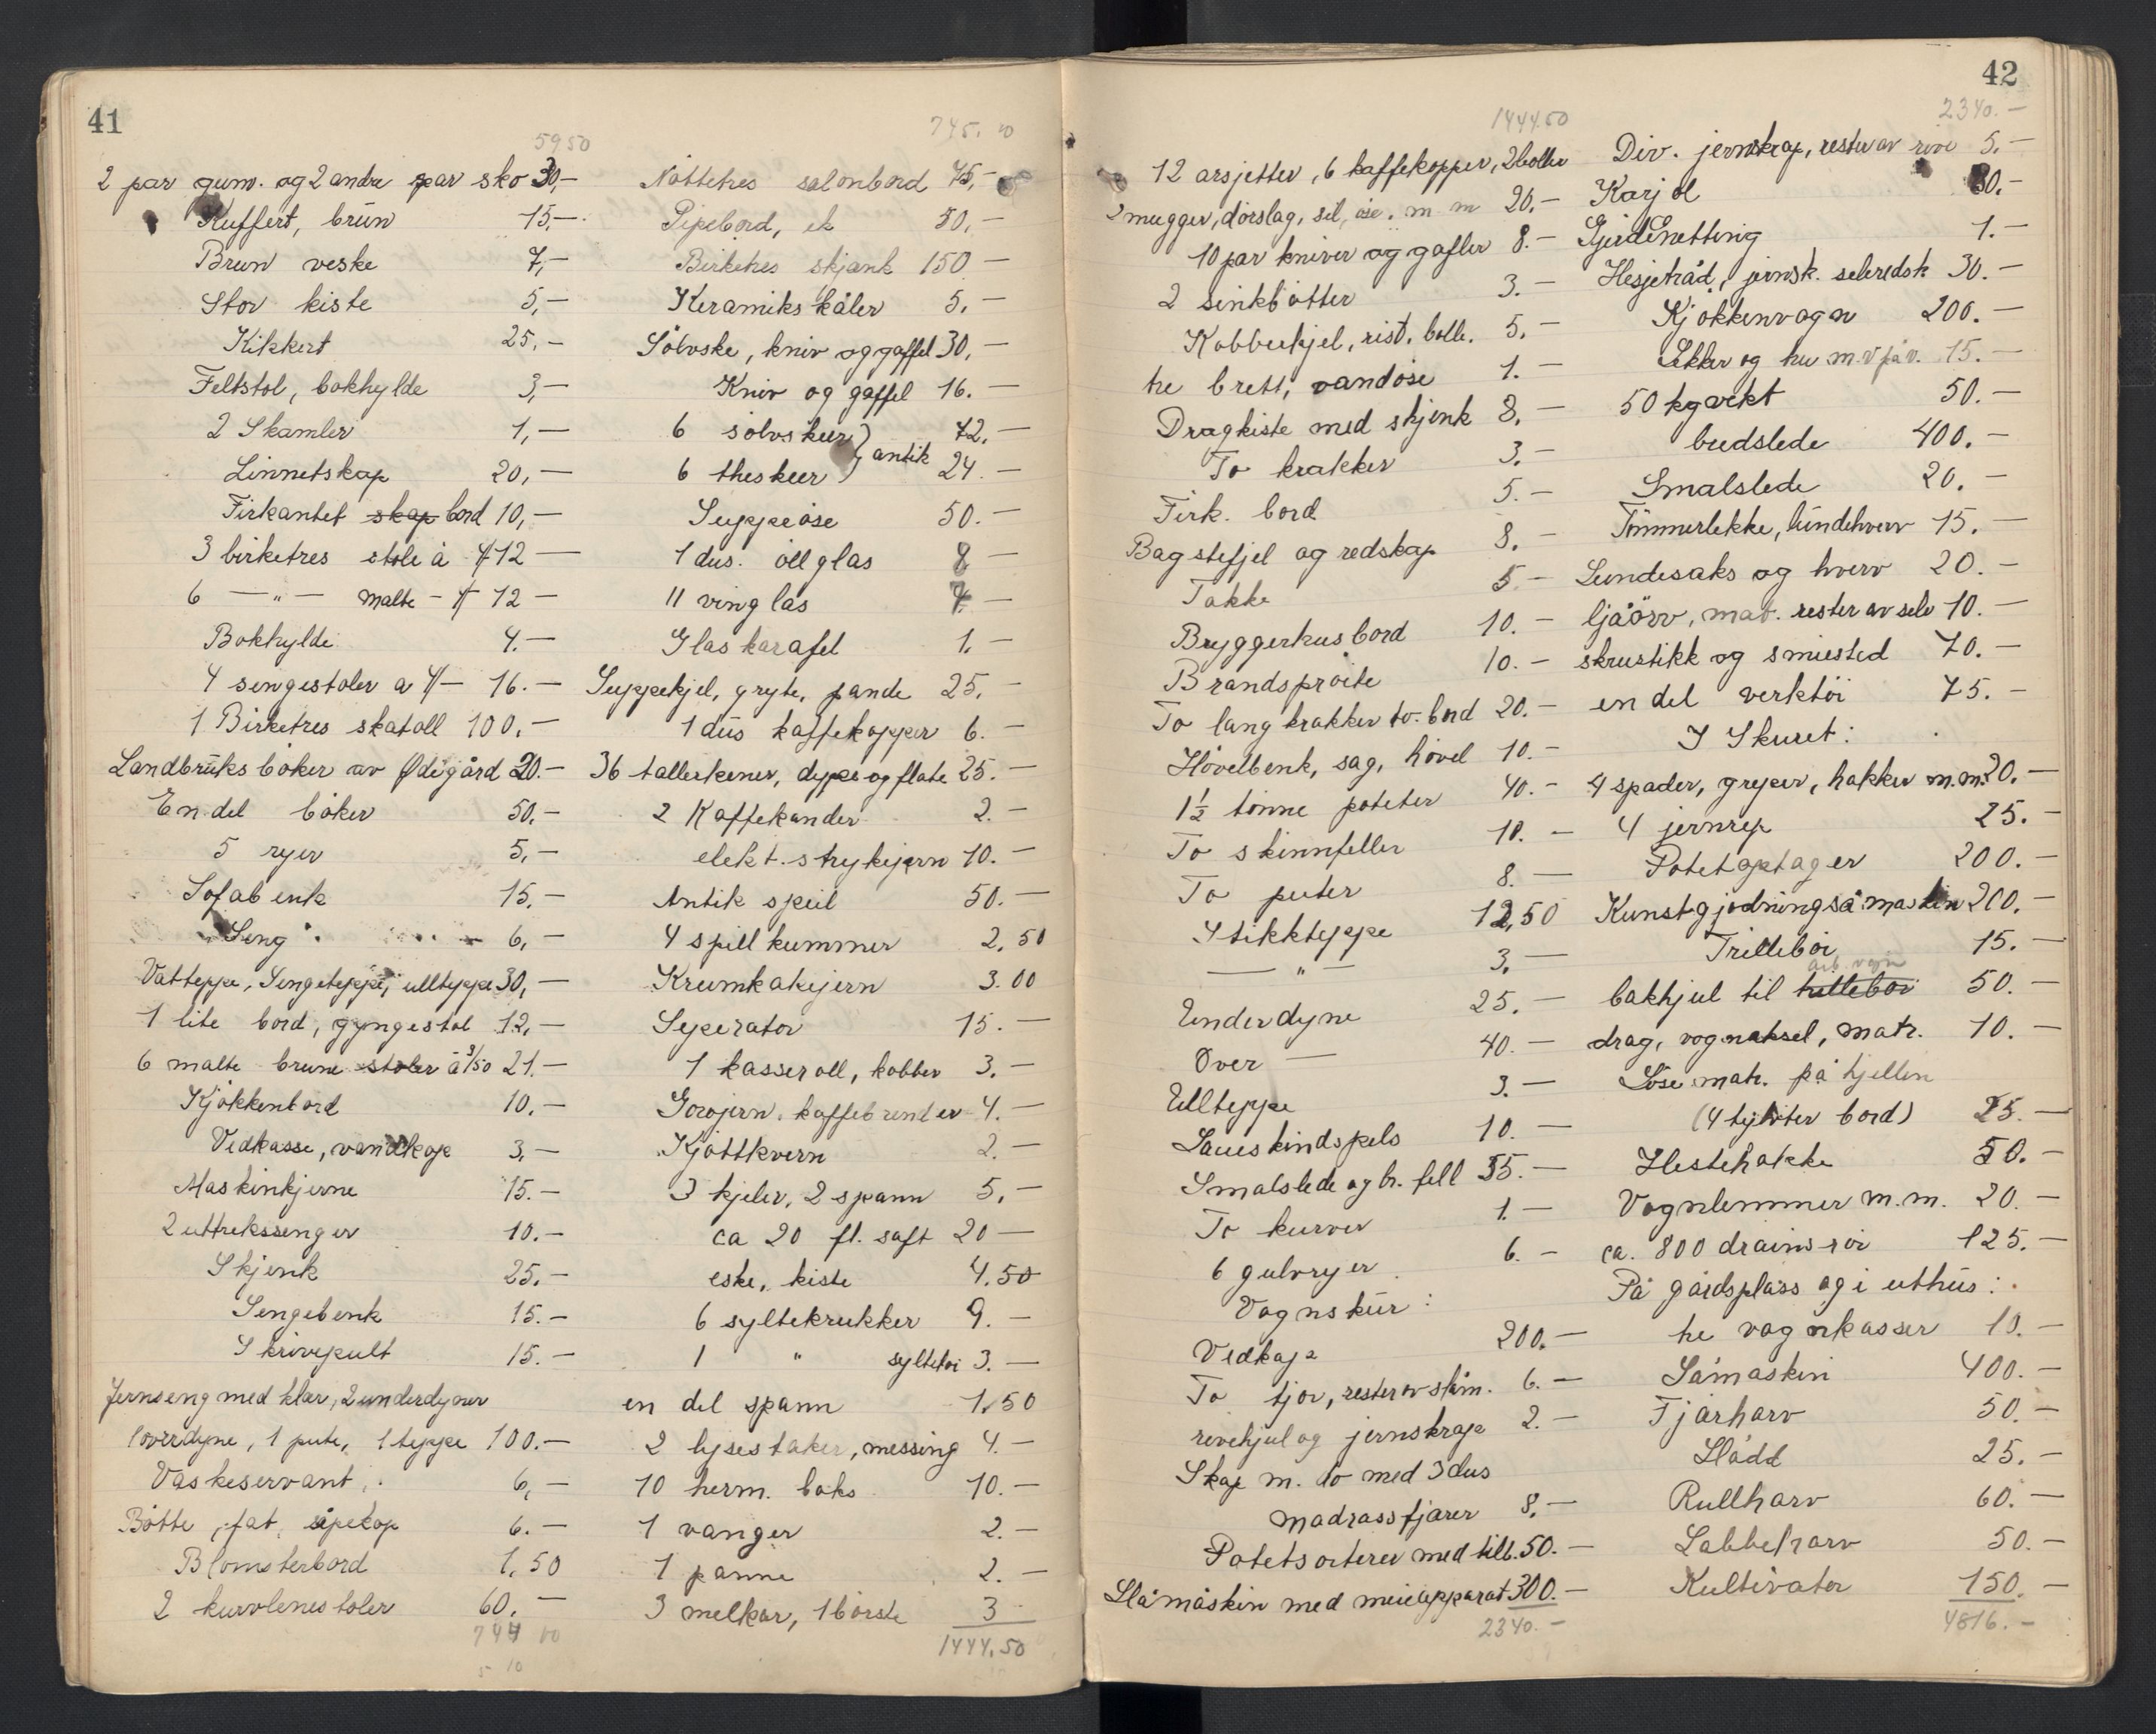 41
5950
2 par gum. og 2 andre par sko 30,—
Kuffert, brun 15,—
Brun veske 7,—
Stor kiste 5,—
Kikkert 25,—
Feltstol, bokhylde 3,—
2 Skamler 1,—
Linnetskap 20,—
Firkantet skap bord 10,—
3 birketres stole á 4 12 —
6 — " — malte - 12 —
Bokhylde 4.—
4 sengestoler a 4/— 16.—
1 Birketres skatoll 100.—
Landbruks bøker av Ødegård 20.—
En del bøker 50.—
5 ryer 5,—
Sofabenk 15,—
Seng 6,—
Vatteppe, Sengeteppe, ullteppe 30,—
1 lite bord, gyngestol 12,—
6 malte brune stoler á 3/50 21.—
Kjøkkenbord 10.—
Vedkasse, vandkop 3,—
Maskinkjerne 15.—
2 uttrekssenger 10.—
Skjenk 25.—
Sengebenk 15.—
Skrivepult 15.—
Jernseng med klær, 2 underdyner
1 overdyne, 1 pute, 1 teppe 100.—
Vaskeservant 6,—
Bøtte, fat, såpekop 6.—
Blomsterbord 1,50
2 kurvlenestoler 60.—
744 00
745.
Nøttetres salonbord 75,—
Pipebord, ek 50,—
Birketres skjenk 150.—
Keramikskåler 5.—
Sølvske, kniv og gaffel 30,—
Kniv og gaffel 16.—
6 sølvskeer } 72,—
antik
6 theskeer 24.—
Suppeøse 50.—
1 dus. øllglas 8 —
11 vinglas 7 —
Glaskarafel 1.—
Suppekjel, gryte, pande 25.—
1 dus kaffekopper 6.—
36 tallerkener, dype og flate 25.—
2 Kaffekander 2.—
elekt. strykejern 10.—
Antik speil 50.—
4 spillkummer 2,50
Krumkakejern 3.00
Seperator 15.—
1 kasseroll, kobber 3.—
Gorojern, kaffebrender 4.—
Kjøttkvern 2.—
3 kjeler, 2 spann 5,—
ca 20 fl. saft 20 —
eske, kiste 4.50
6 syltekrukker 9.—
1 " syltetøi 3.—
en del spann 1,50
2 lysestaker, messing 4.—
10 herm. boks 10.—
1 vanger 2.—
1 panne 2.—
3 melkar, 1 børste 3
1444,50
42
1444.50
12 arsjetter, 6 kaffekopper, 2 boller
2 mugger, dørslag, sil, øse. m m 20,—
10 par kniver og gafler 8.—
2 sinkbøtter 3.—
Kobberkjel, rist, bolle. 5.—
tre brett, vandøse 1.—
Dragkiste med skjenk 8.—
To krakker 3.—
Firk. bord 5.—
Bagstefjel og redskap 8.—
Takke 5.—
Bryggerhusbord 10.—
Brandsprøite 10.—
To langkrakker to. bord 20.—
Høvelbenk, sag, høvel 10.—
1½ tønne poteter 40.—
To skinnfeller 10.—
To puter 8.—
4 tikkteppe 12,50
— " — 3.—
Underdyne 25.—
Over — 40.—
Ullteppe 3.—
Saueskindspels 10.—
Smalslede og br. fell 55.—
To kurver 1.—
6 gulvryer 6.—
Vognskur:
Vedkapp 200.—
To tjor, rester av 6.—
rivehjul og jernskrap 2.—
Skap m. do med 3 dus
madrassfjærer 8,—
Potetsorterer med tilb. 50.—
Slåmaskin med meieapparat 300.—
2340.—
2340.—
Div. jernskrap, rester av rive 5.—
Karjol 30.—
Gjerdenetting 1.—
Hesjetråd, jernsk. seleredsk 30.—
Kjøkkenvogn 200.—
Lekker og hu m.v på v. 15.—
50 kg vekt 50.—
bredslede 400.—
Smalslede 20.—
Tømmerlekke, lundehverv 15.—
Lundesaks og hverv 20.—
ljåørv, mat. rester av sele 10.—
skrustikk og smiested 70.—
en del verktøi 75.—
I Skuret:
4 spader, greper, hakker m.m. 20.—
4 jernrep 25.—
Potetoptager 200.—
Kunstgjødningsåmaskin 200.—
Trillebør 15.—
arb. vogn
bakhjul til trillebør 50.—
drag, vognaksel, matr. 10.—
Løse matr. på hjellen
(4 bord) 25.—
Hestehakke 50.—
Vognlemmer m.m. 20.—
ca. 800 drainsrør 125.—
På gårdsplass og i uthus:
tre vognkasser 10.—
Såmaskin 400.—
Fjærharv 50.—
Slådd 25.—
Rullharv 60.—
Labbeharv 50.—
Kultivator 150.—
4816.—